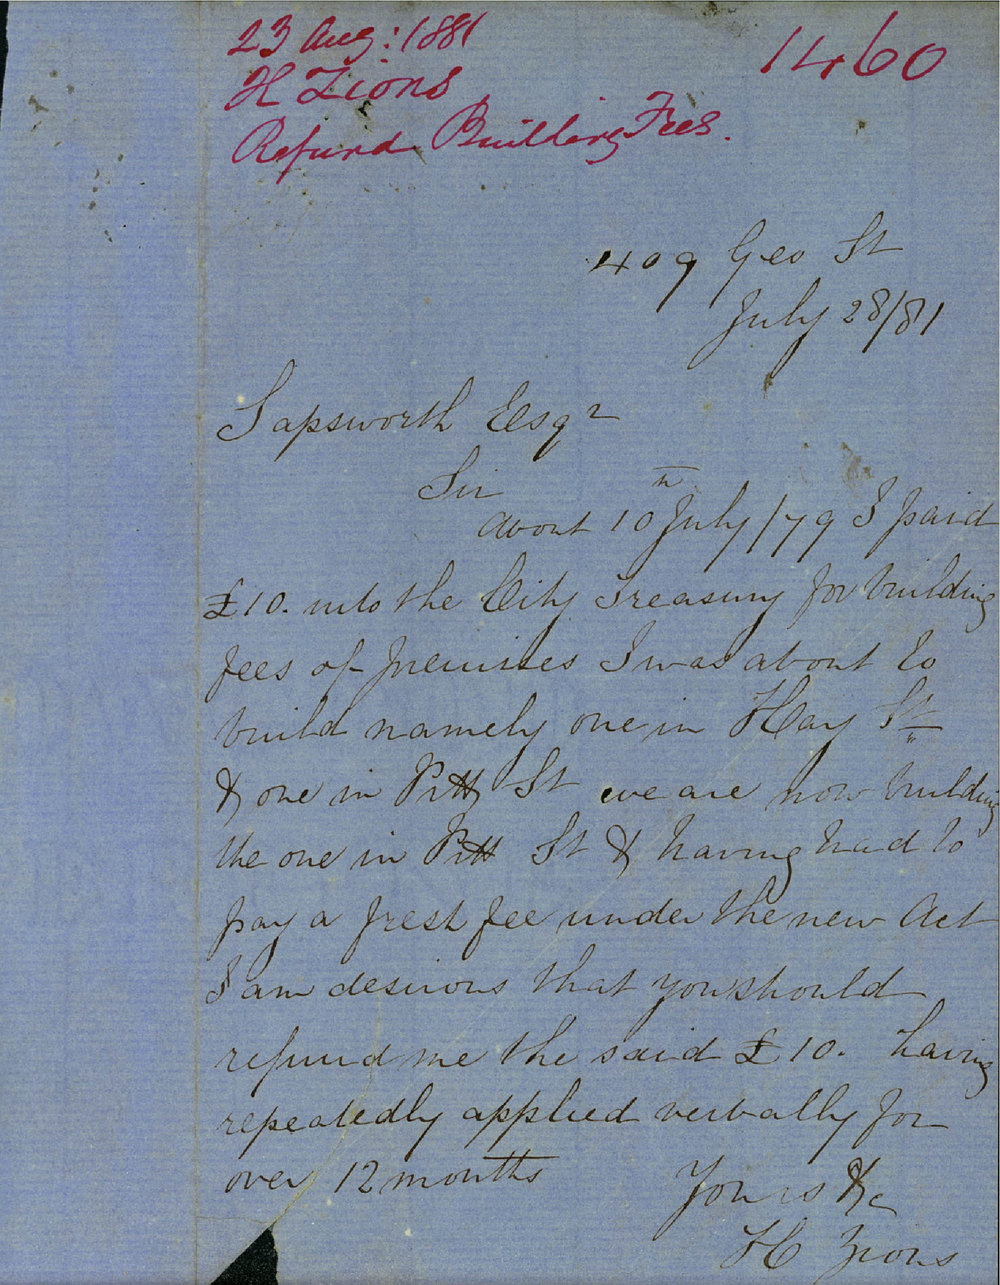 23 Aug: 1881
1460
H Zions
Refund Building Fees.
409 Geo St
July 28/81
Sapsworth Esqr
Sir
About 10th July/79 I paid
£10. into the City Treasury for building
fees of premises I was about to
build namely one in Hay St
& one in Pitt St we are now building
the one in Pitt St & having had to
pay a fresh fee under the new Act
I am desirous that you should
refund me the said £10. having
repeatedly applied verbally for
over 12 months
Yours &c
H Zions